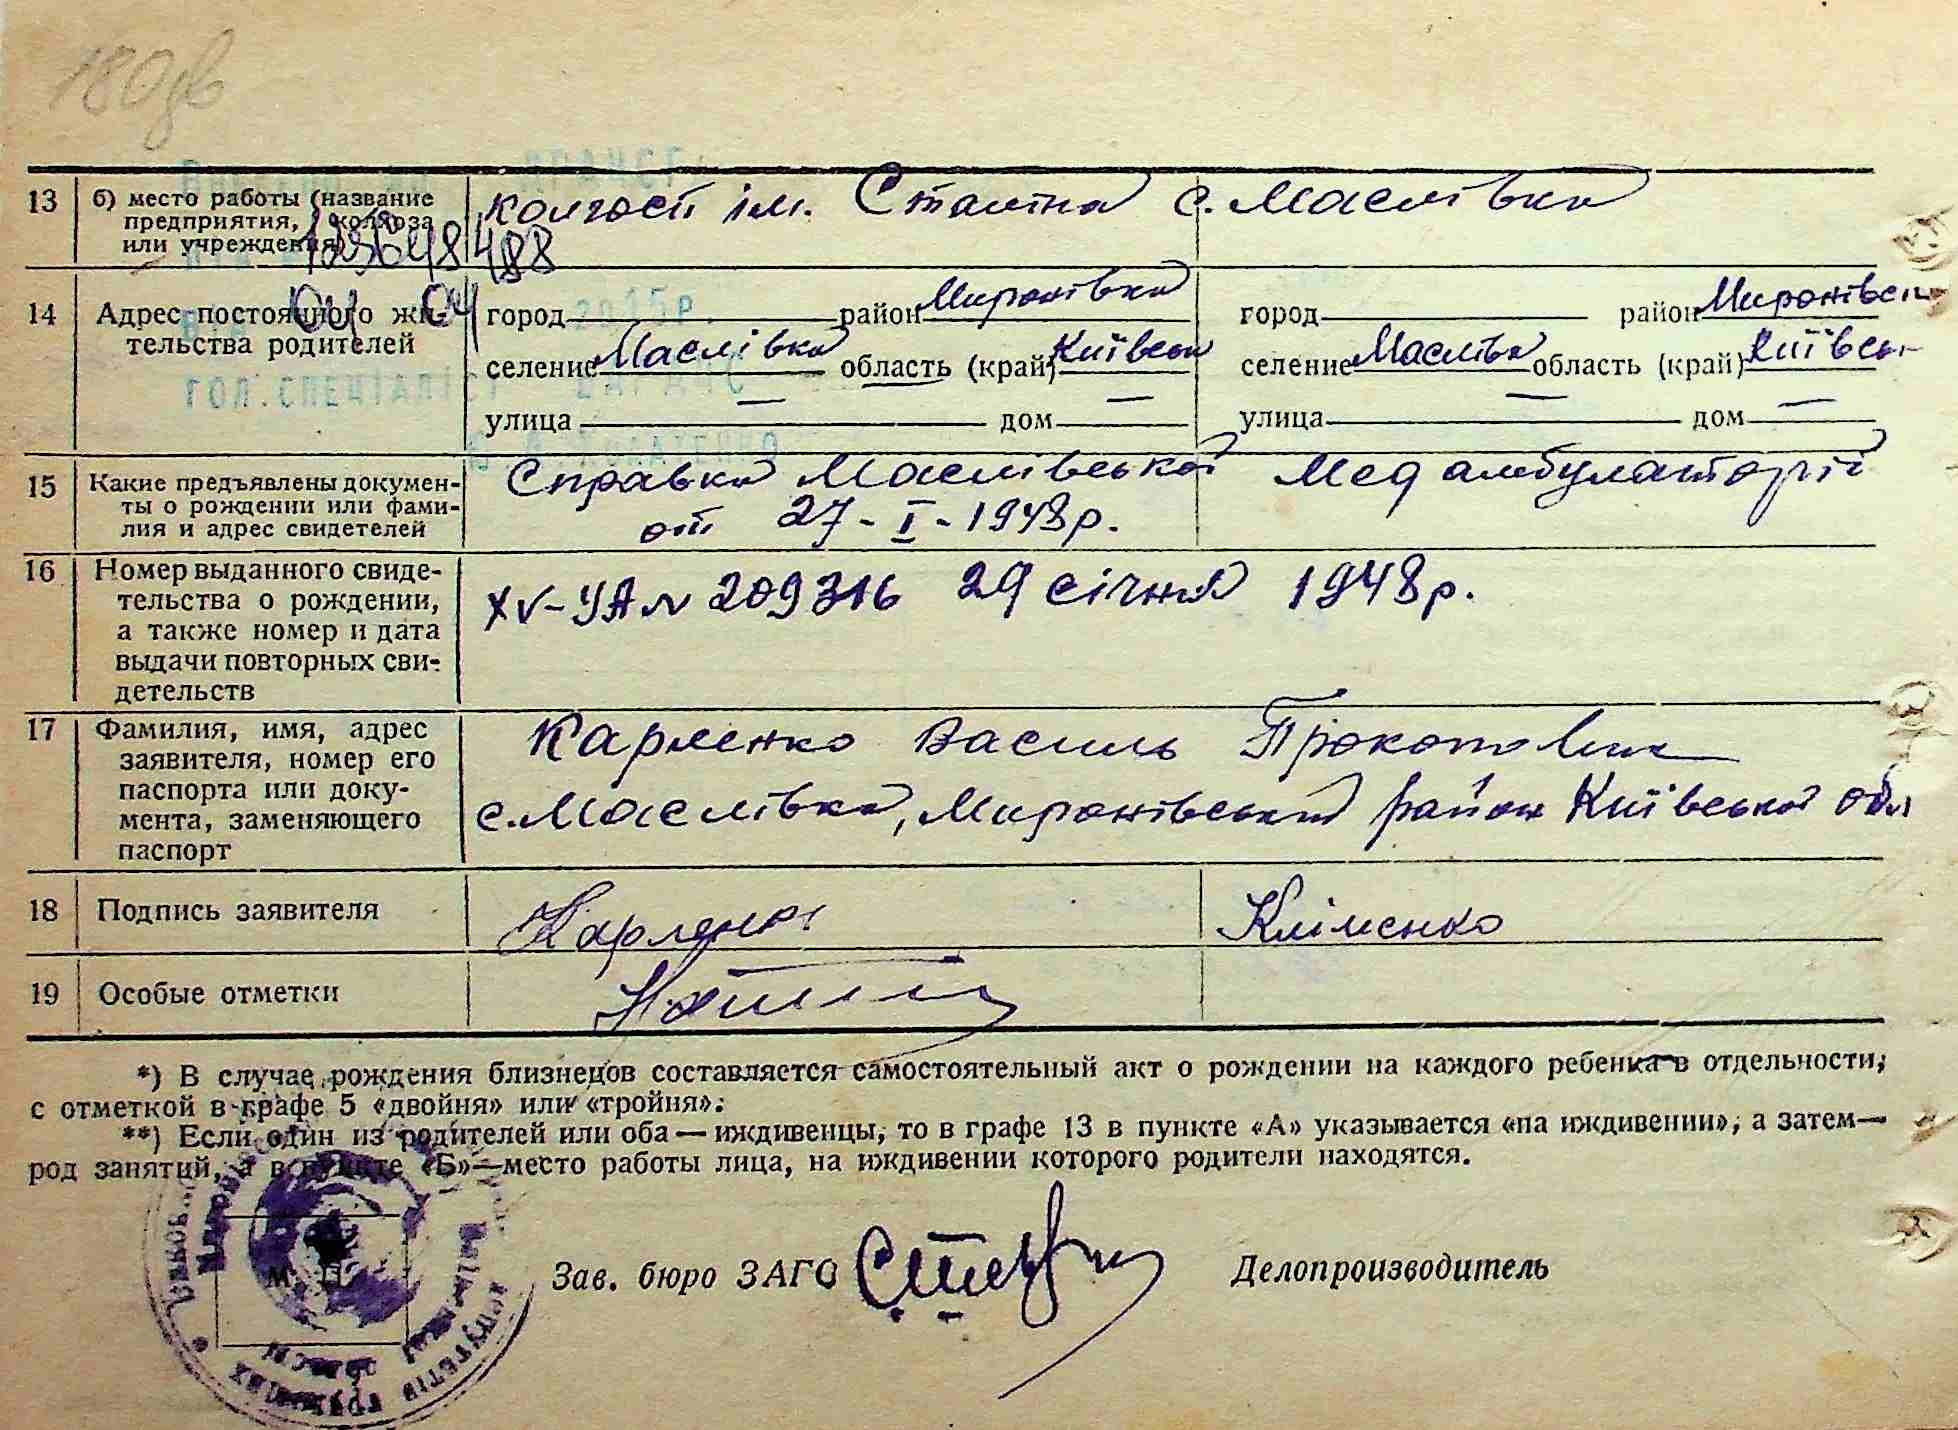 180зв
13 б) место работы (название предприятия, колхоза или учреждения) колгосп ім. Сталіна с. Маслівка
129648488
14 Адрес постоянного жительства родителей
04 04
2015р.
ГОЛ.СПЕЦІАЛІСТ
город район Миронівка город район Миронівськ
селение Маслівка область (край) Київськ селение Маслівка область (край) Київськ
улица — дом — улица — дом —
15 Какие предъявлены документы о рождении или фамилия и адрес свидетелей Справка Маслівської Мед амбулаторії
от 27-I-1948р.
16 Номер выданного свидетельства о рождении, а также номер и дата выдачи повторных свидетельств XV-УА № 209316 29 січня 1948р.
17 Фамилия, имя, адрес заявителя, номер его паспорта или документа, заменяющего паспорт Карленко Василь Прокопович
с. Маслівка, Миронівський район Київської обл
18 Подпись заявителя Карленко Кліменко
19 Особые отметки
*) В случае рождения близнецов составляется самостоятельный акт о рождении на каждого ребенка в отдельности,
с отметкой в графе 5 «двойня» или «тройня».
**) Если один из родителей или оба — иждивенцы, то в графе 13 в пункте «А» указывается «на иждивении», а затем —
род занятий, а в пункте «Б» — место работы лица, на иждивении которого родители находятся.
М. П.
Зав. бюро ЗАГС Делопроизводитель